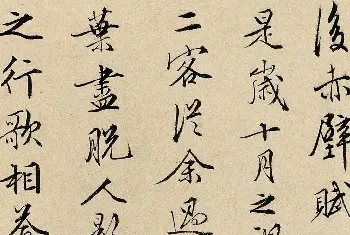 後赤壁賦
是歲十月之
二客從余過
葉盡脫人影
之行歌相答